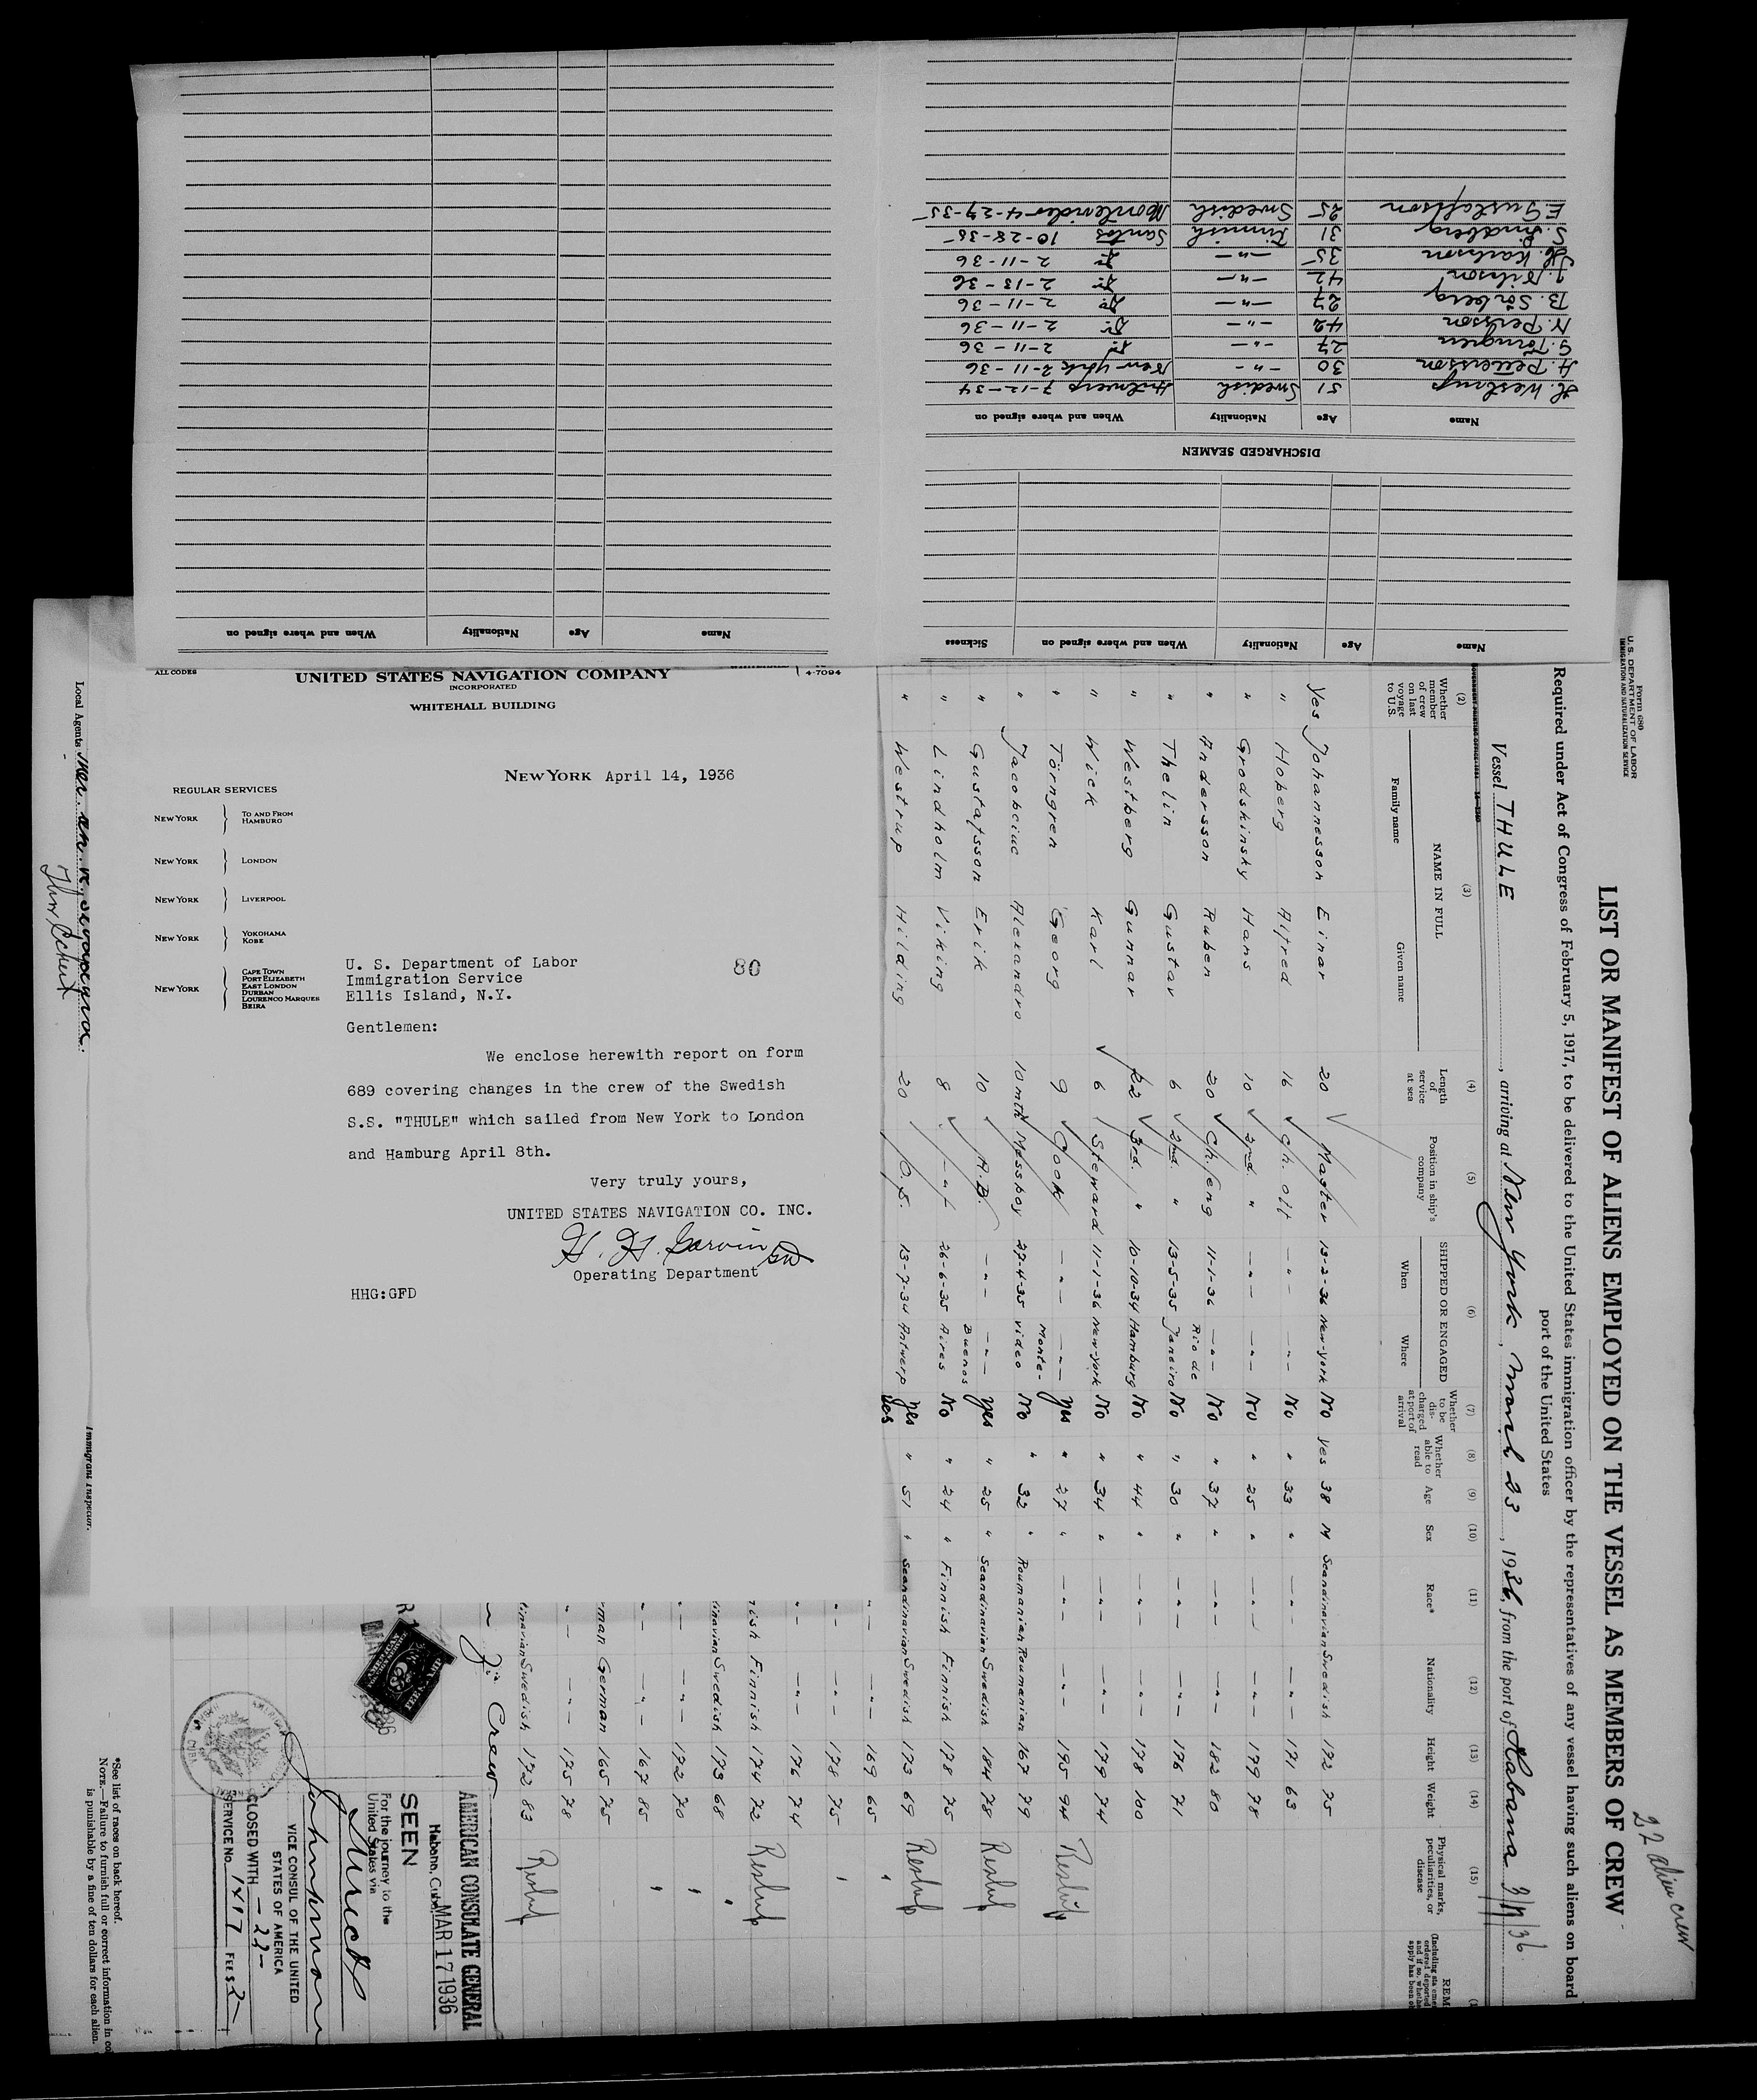 Name Age Nationality When and where signed on
Name Age Nationality When and where signed on Sickness
DISCHARGED SEAMEN
Name Age Nationality When and where signed on
H. Westrup 51 Swedish Antwerp 7-12-34
A. Pettersson 30 -"- New-York 2-11-36
G. Törngren 27 -"- Do 2-11-36
N. Persson 42 -"- Do 2-11-36
B. Sörberg 27 -"- Do 2-11-36
J. Nilsson 42 -"- Do 2-13-36
H. Karlsson 35 -"- Do 2-11-36
S. Lindberg 31 Finnish Santos 10-28-35
E. Gustafsson 25 Swedish Montevideo 4-27-35
ALL CODES
4-7094
UNITED STATES NAVIGATION COMPANY
INCORPORATED
WHITEHALL BUILDING
NEW YORK April 14, 1936
REGULAR SERVICES
NEW YORK } TO AND FROM HAMBURG
NEW YORK } LONDON
NEW YORK } LIVERPOOL
NEW YORK } YOKOHAMA KOBE
NEW YORK } CAPE TOWN PORT ELIZABETH EAST LONDON DURBAN LOURENCO MARQUES BEIRA
U. S. Department of Labor
Immigration Service
Ellis Island, N.Y.
80
Gentlemen:
We enclose herewith report on form
689 covering changes in the crew of the Swedish
S.S. "THULE" which sailed from New York to London
and Hamburg April 8th.
Very truly yours,
UNITED STATES NAVIGATION CO. INC.
H. H. Garvin
Operating Department
HHG:GFD
Form 680
U. S. DEPARTMENT OF LABOR
IMMIGRATION AND NATURALIZATION SERVICE
22 alien crew
LIST OR MANIFEST OF ALIENS EMPLOYED ON THE VESSEL AS MEMBERS OF CREW
Required under Act of Congress of February 5, 1917, to be delivered to the United States immigration officer by the representatives of any vessel having such aliens on board
port of the United States
Vessel THULE, arriving at New York, March 23, 1936, from the port of Habana 3/17/36
(2) (3) (4) (5) (6) (7) (8) (9) (10) (11) (12) (13) (14) (15)
Whether member of crew on last voyage to U.S. NAME IN FULL Family name Given name Length of service at sea Position in ship's company SHIPPED OR ENGAGED When Where Whether to be discharged at port of arrival Whether able to read Age Sex Race* Nationality Height Weight Physical marks, peculiarities, or disease
Yes Johannesson Einar 20 Master 13-2-36 New-York No Yes 38 M Scandinavian Swedish 172 75
" Hoberg Alfred 16 Ch. off -"- -"- No " 33 " -"- -"- 171 63
" Grodskinsky Hans 10 2nd. " -"- -"- No " 25 " -"- -"- 179 78
" Andersson Ruben 20 Ch. eng 11-1-36 -"- No " 37 " -"- -"- 182 80
" Thelin Gustav 6 2nd. " 13-5-35 Rio de Janeiro No " 30 " -"- -"- 176 71
" Westberg Gunnar 22 3rd. " 10-10-34 Hamburg No " 44 " -"- -"- 178 100
" Wick Karl 6 Steward 11-1-36 New-York No " 34 " -"- -"- 179 74
" Törngren Georg 9 Cook -"- -"- yes " 27 " -"- -"- 195 94
" Jacobciuc Alexandro 10 mth Messboy 27-4-35 Monte-video No " 32 " Roumanian Roumanian 167 79
" Gustafsson Erik 10 A.B. -"- -"- yes " 25 " Scandinavian Swedish 184 78
" Lindholm Viking 8 -"- 26-6-35 Buenos Aires No " 24 " Finnish Finnish 178 75
" Westrup Hilding 20 O.S. 13-7-34 Antwerp yes " 51 " Scandinavian Swedish 173 69
Yes
-"- -"- 169 65
-"- -"- 178 75
-"- -"- 176 74
nish Finnish 174 72
inavian Swedish 173 68
-"- -"- 172 70
-"- -"- 167 85
rman German 165 75
-"- -"- 175 78
tinavian Swedish 172 83
Crew
AMERICAN CONSULATE GENERAL
Habana, Cuba MAR 17 1936
SEEN
For the journey to the
United States via
AMERICAN
$2
FEE STAMP
VICE CONSUL OF THE UNITED
STATES OF AMERICA
CLOSED WITH - 22 -
SERVICE No. 1417 FEE $ 2-
*See list of races on back hereof.
NOTE.—Failure to furnish full or correct information in
is punishable by a fine of ten dollars for each alien.
Local Agents
Immigrant Inspector.